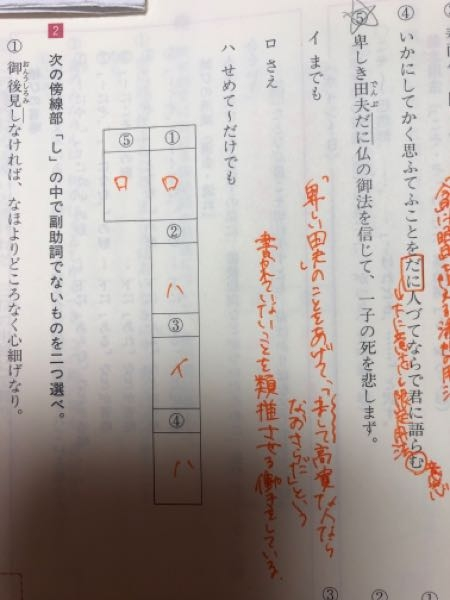 ④ いかにしてかく思ふてふことをだに人づてならで君に語らむ
意志
下に意志→限定用法
⑤ 卑しき田夫だに仏の御法を信じて、一子の死を悲しまず。
でんぷ
イ までも
「卑しい田夫」のことをあげて、「まして高貴な人なら
なおさらだ」という
ロ さえ
書かれていないことを類推させる働きをしている。
ハ せめて〜だけでも
① ② ③ ④
ロ ハ イ ハ
⑤
ロ
2 次の傍線部「し」の中で副助詞でないものを二つ選べ。
おんうしろみ
① 御後見しなければ、なほよりどころなく心細げなり。
③ ② ①